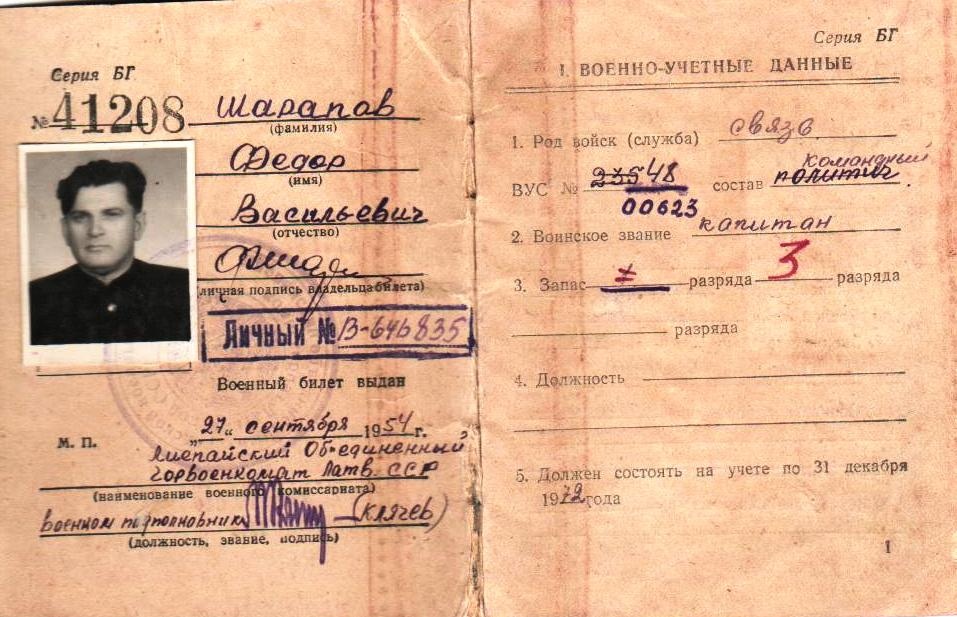 Серия БГ
№ 41208
Шарапов
(фамилия)
Федор
(имя)
Васильевич
(отчество)
(личная подпись владельца билета)
Личный № В-646835
Военный билет выдан
М. П.
„27“ сентября 1954 г.
Лиепайский Объединенный
горвоенкомат Латв. ССР
(наименование военного комиссариата)
военком подполковник (Клячев)
(должность, звание, подпись)
Серия БГ
I. ВОЕННО-УЧЕТНЫЕ ДАННЫЕ
1. Род войск (служба) связь
командный
ВУС № 23548 состав политич.
00623
2. Воинское звание капитан
3. Запас I разряда 3 разряда
разряда
4. Должность
5. Должен состоять на учете по 31 декабря
1972 года
1